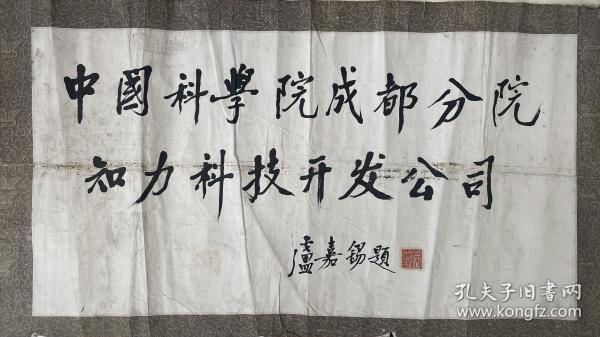 中國科學院成都分院
知力科技开发公司
盧嘉錫題
孔夫子旧书网
www.kongfz.com